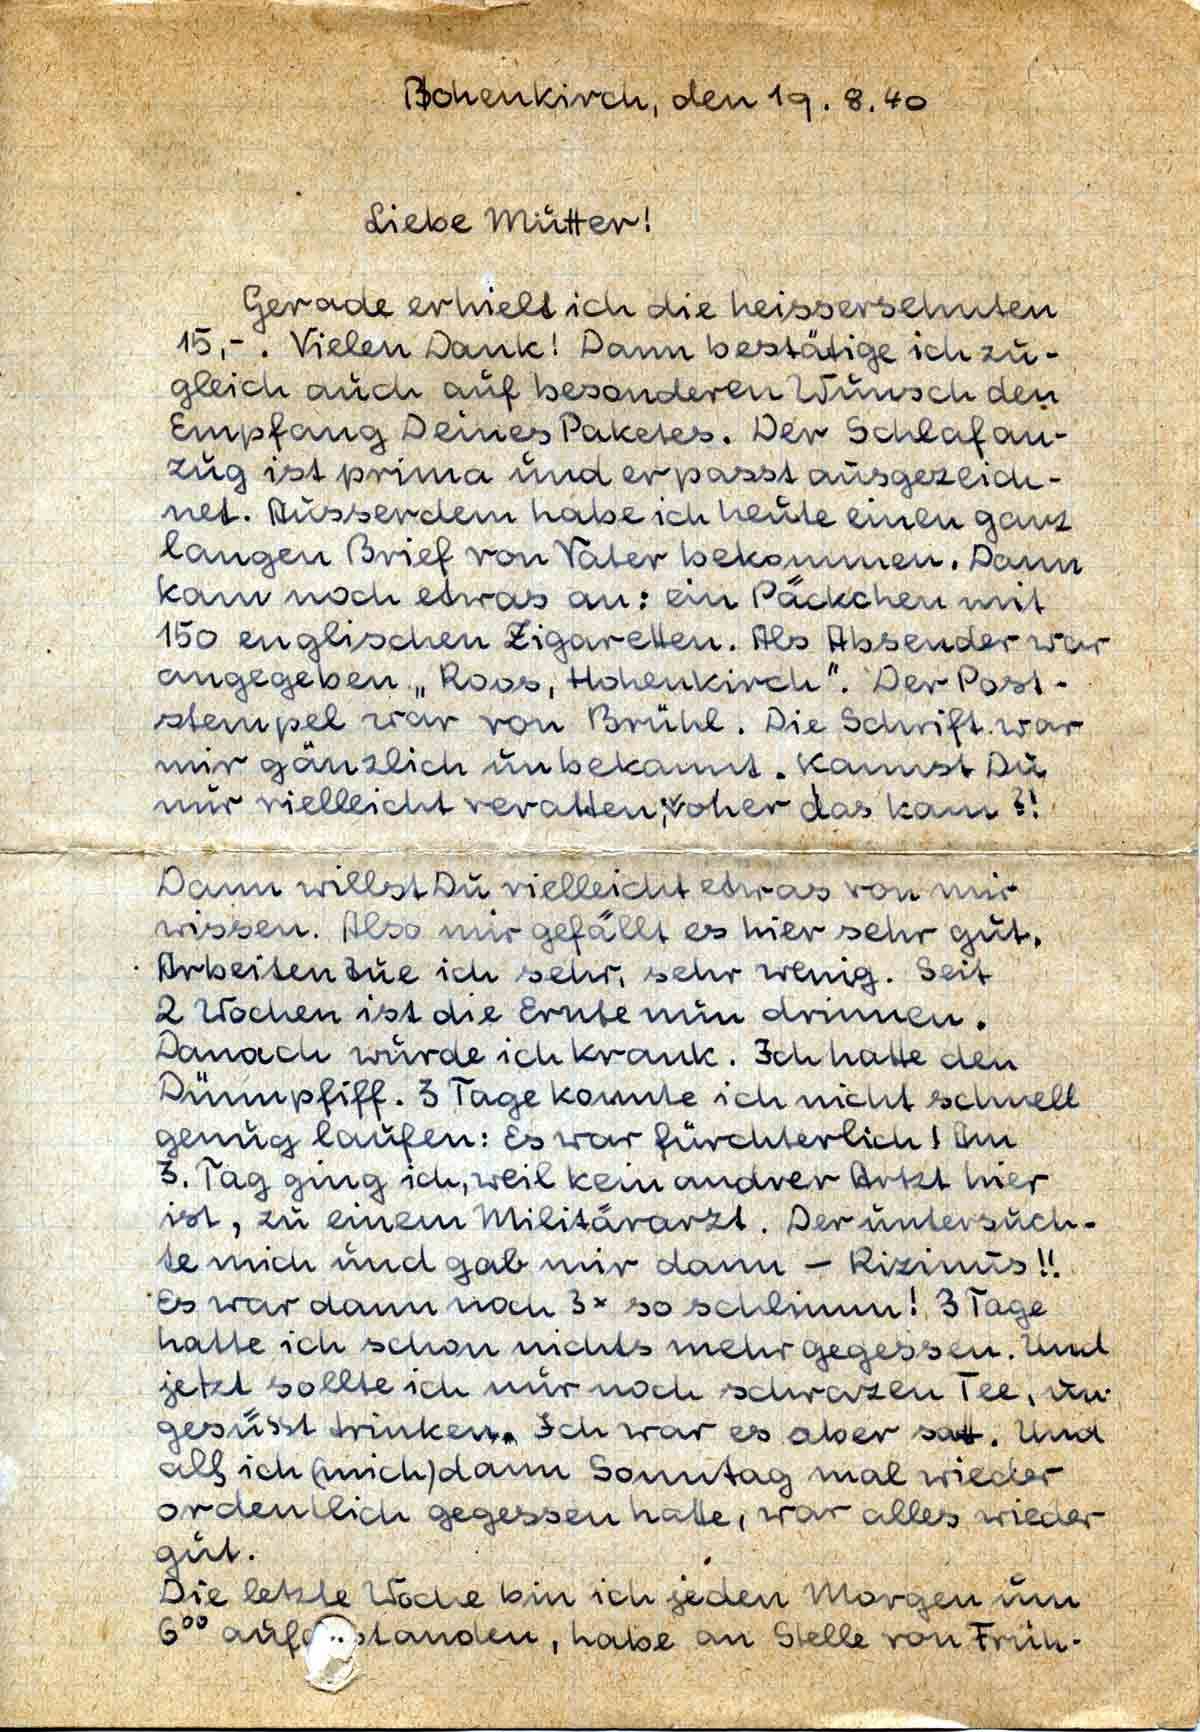 Bohenkirch, den 19. 8. 40
Liebe Mutter!
Gerade erhielt ich die heissersehnten
15,-. Vielen Dank! Dann bestätige ich zu-
gleich auch auf besonderen Wunsch den
Empfang Deines Paketes. Der Schlafan-
zug ist prima und er passt ausgezeich-
net. Ausserdem habe ich heute einen ganz
langen Brief von Vater bekommen. Dann
kam noch etwas an: ein Päckchen mit
150 englischen Zigaretten. Als Absender war
angegeben „Roos, Hohenkirch". Der Post-
stempel war von Brühl. Die Schrift war
mir gänzlich unbekannt. Kannst Du
mir vielleicht veratten, woher das kam?!
Dann willst Du vielleicht etwas von mir
wissen. Also mir gefällt es hier sehr gut.
Arbeiten tue ich sehr, sehr wenig. Seit
2 Wochen ist die Ernte nun drinnen.
Danach wurde ich krank. Ich hatte den
Dünnpfiff. 3 Tage konnte ich nicht schnell
genug laufen: Es war fürchterlich! Am
3. Tag ging ich, weil kein andrer Artzt hier
ist, zu einem Militärarzt. Der untersuch-
te mich und gab mir dann – Rizinus!!
Es war dann noch 3x so schlimm! 3 Tage
hatte ich schon nichts mehr gegessen. Und
jetzt sollte ich nur noch schwazen Tee, un-
gesüsst trinken. Ich war es aber satt. Und
als ich (mich) dann Sonntag mal wieder
ordentlich gegessen hatte, war alles wieder
gut.
Die letzte Woche bin ich jeden Morgen um
6⁰⁰ aufgestanden, habe an Stelle von Früh-